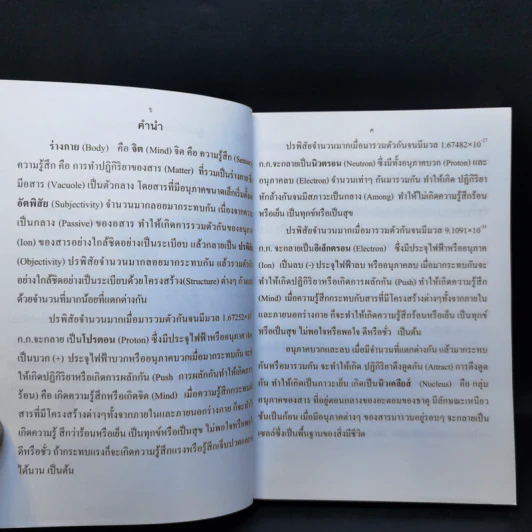 คำนำ
ร่างกาย (Body) คือ จิต (Mind) จิต คือ ความรู้สึก
ความรู้สึก คือ การทำปฏิกิริยาของสาร (Matter) ที่รวมเป็นร่างกาย
มีอสาร (Vacuole) เป็นตัวกลาง โดยสารที่มีอนุภาคขนาดเล็กเริ่มต้น
อัตพิสัย (Subjectivity) จำนวนมากลอยมากระทบกัน เนื่องจาก
เป็นกลาง (Passive) ของอสาร ทำให้เกิดการรวมตัวกันของ
(Ion) ของสารอย่างใกล้ชิดอย่างเป็นระเบียบ แล้วกลายเป็น
(Objectivity) ปรพิสัยจำนวนมากลอยมากระทบกัน แล้วรวมตัว
อย่างใกล้ชิดอย่างเป็นระเบียบด้วยโครงสร้าง(Structure) ต่างๆ
ด้วยจำนวนที่มากน้อยที่แตกต่างกัน
ปรพิสัยจำนวนมากเมื่อมารวมตัวกันจนมีมวล 1.67252×10
ก.ก.จะกลายเป็นโปรตอน (Proton) ซึ่งมีประจุไฟฟ้าหรืออนุภาค
เป็นบวก (+) ประจุไฟฟ้าบวกหรืออนุภาคบวกเมื่อมากระทบกัน จะทำ
ให้เกิดปฏิกิริยาหรือเกิดการผลักกัน (Push การผลักกันทำให้เกิด
ร้อน) คือ เกิดความรู้สึกหรือเกิดจิต (Mind) เมื่อความรู้สึกกระทบ
สารที่มีโครงสร้างต่างๆทั้งจากภายในและภายนอกร่างกาย ก็จะทำให้
เกิดความรู้ สึกว่าร้อนหรือเย็น เป็นทุกข์หรือเป็นสุข ไม่พอใจหรือพอใจ
ดีหรือชั่ว ถ้ากระทบแรงก็จะเกิดความรู้สึกแรงหรือรู้สึกเจ็บปวด
ได้นาน เป็นต้น
ปรพิสัยจำนวนมากเมื่อมารวมตัวกันจนมีมวล 1.67482×10⁻²⁷
ก.ก.จะกลายเป็นนิวตรอน (Neutron) ซึ่งมีทั้งอนุภาคบวก (Proton) และ
อนุภาคลบ (Electron) จำนวนเท่าๆ กันมารวมกัน ทำให้เกิด ปฏิกิริยา
หักล้างกันจนมีสภาวะเป็นกลาง (Among) ทำให้ไม่เกิดความรู้สึกร้อน
หรือเย็น เป็นทุกข์หรือเป็นสุข
ปรพิสัยจำนวนมากเมื่อมารวมตัวกันจนมีมวล 9.1091×10⁻³¹
ก.ก. จะกลายเป็นอิเล็กตรอน (Electron) ซึ่งมีประจุไฟฟ้าหรืออนุภาค
(Ion) เป็นลบ (-) ประจุไฟฟ้าลบ หรืออนุภาคลบ เมื่อมากระทบกันจะ
ทำให้เกิดปฏิกิริยาหรือเกิดการผลักกัน (Push) ทำให้เกิดความรู้สึก
(Mind) เมื่อความรู้สึกกระทบกับสารที่มีโครงสร้างต่างๆทั้งจากภายใน
และภายนอกร่างกาย ก็จะทำให้เกิดความรู้สึกร้อนหรือเย็น เป็นทุกข์
หรือเป็นสุข ไม่พอใจหรือพอใจ ดีหรือชั่ว เป็นต้น
อนุภาคบวกและลบ เมื่อมีจำนวนที่แตกต่างกัน แล้วมากระทบ
กันหรือมารวมกัน จะทำให้เกิด ปฏิกิริยาดึงดูดกัน (Attract) การดึงดูด
กัน ทำให้เกิดเป็นภาวะเย็น เกิดเป็นนิวเคลียส์ (Nucleus) คือ กลุ่ม
อนุภาคของสาร ที่อยู่ตอนกลางของอะตอมของธาตุ มีลักษณะเหนียว
ข้นเป็นก้อน เมื่อมีอนุภาคต่างๆ ของสารมารวมอยู่รอบๆ จะกลายเป็น
เซลล์ซึ่งเป็นพื้นฐานของสิ่งมีชีวิต